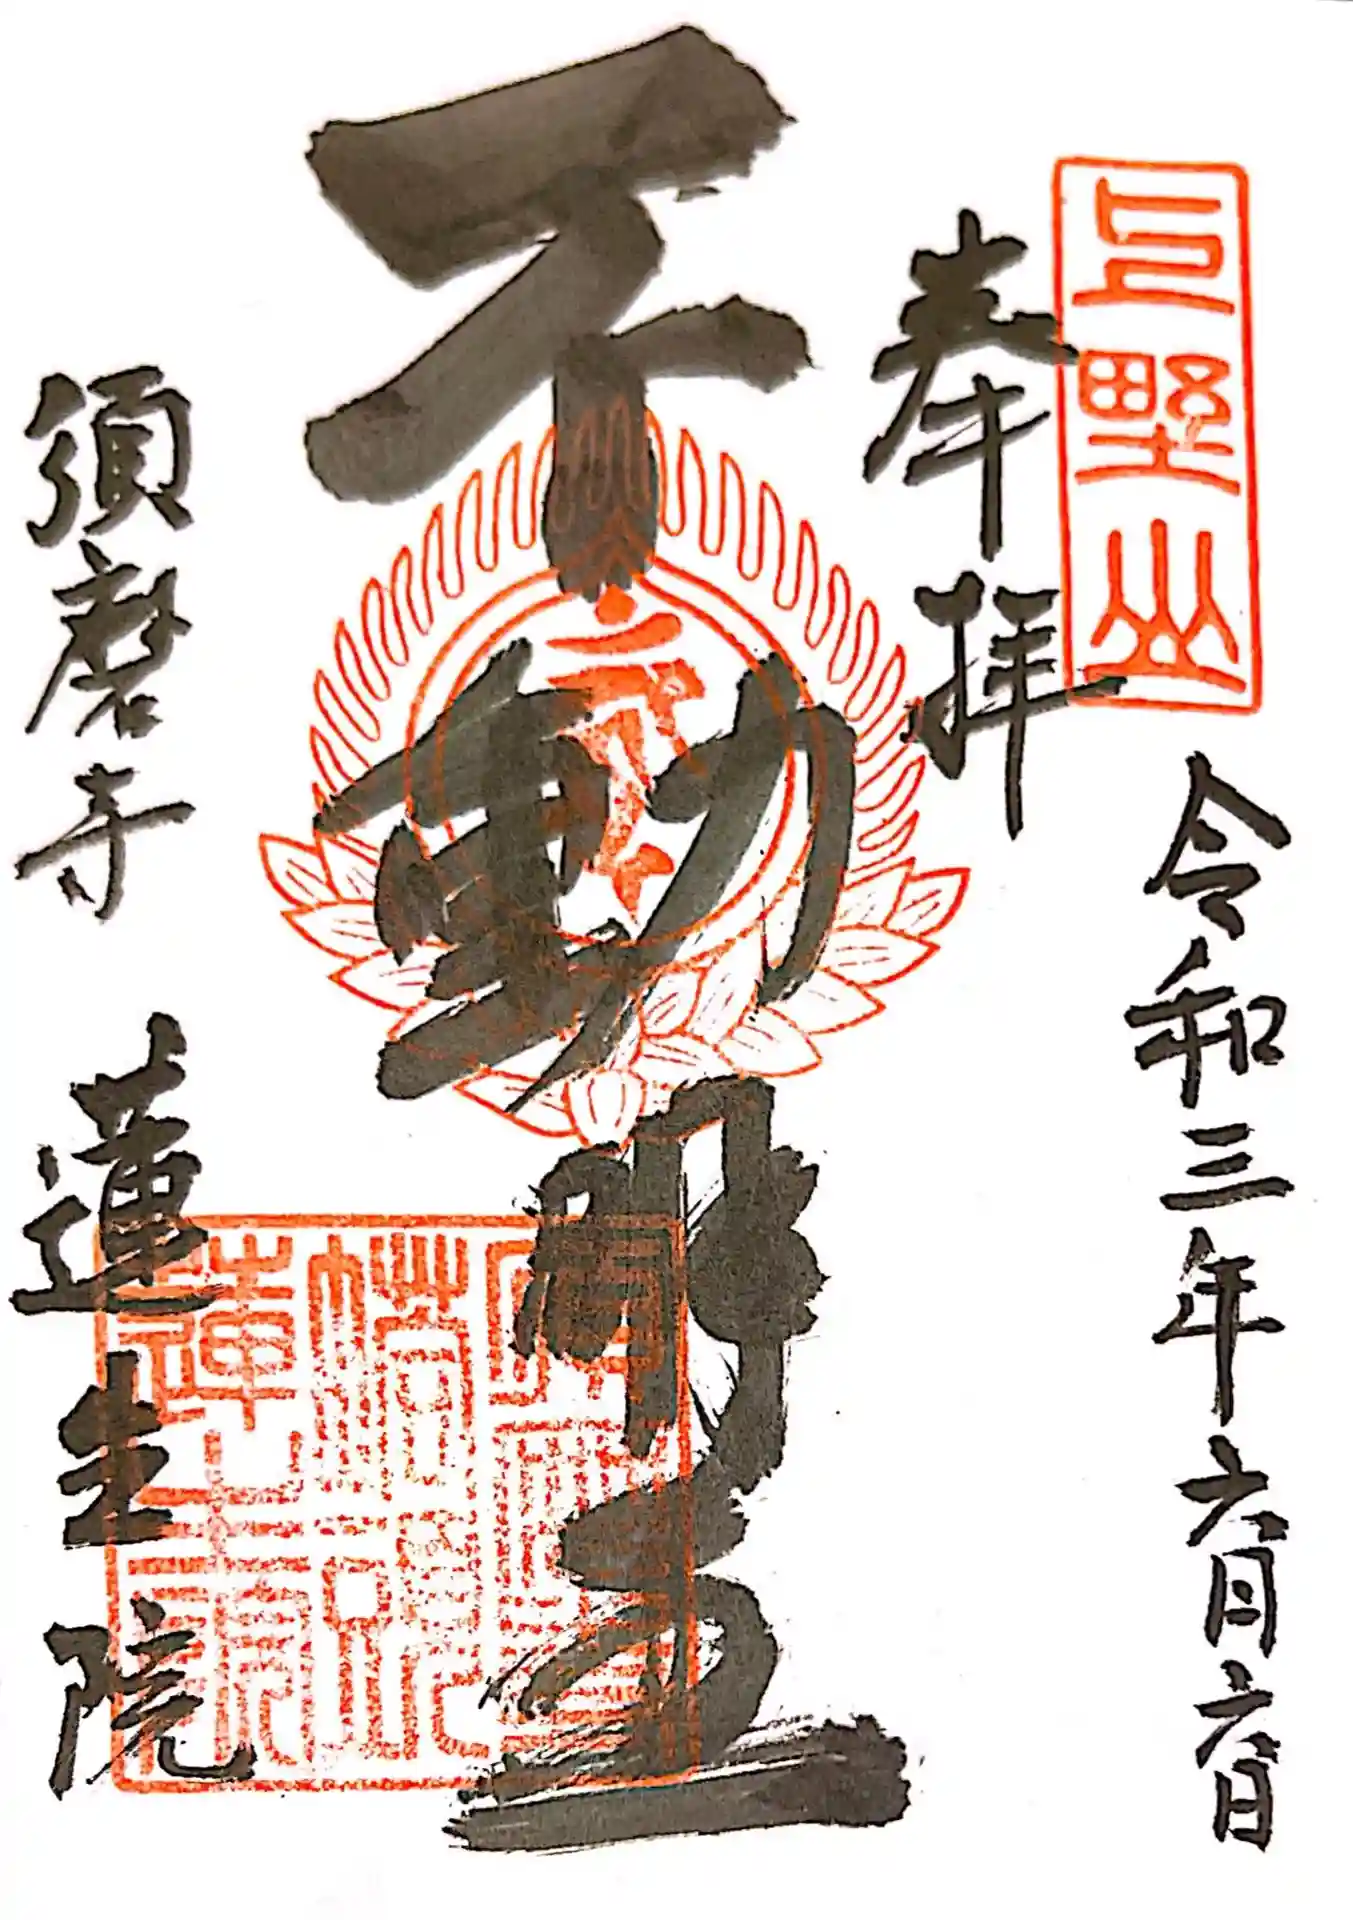 上野山
奉拝
令和三年六月六日
不動明王
須磨寺　蓮生院